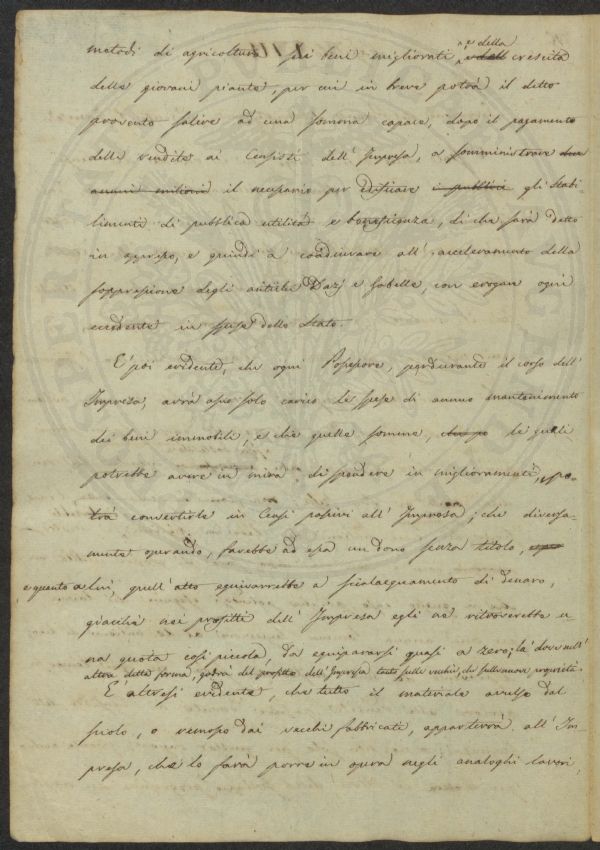 metodi di agricoltura sui beni migliorati, e della crescita
delle giovani piante, per cui in breve potrà il detto
provento salire ad una somma capace, dopo il pagamento
delle rendite ai Censisti dell'Impresa, a somministrare due
annui milioni il necessario per edificare i pubblici gli Stabi-
limenti di pubblica utilità e beneficenza, di che sarà detto
in appresso, e quindi a coadiuvare all'acceleramento della
soppressione degli antichi Dazj e Gabelle, con erogare ogni
eccedente in spese dello Stato.
E' poi evidente, che ogni Possessore, perdurante il corso dell'
Impresa, avrà a suo solo carico le spese di annuo mantenimento
dei beni immobili, e che quelle somme, che po le quali
potrebbe avere in mira di spendere in miglioramenti, po-
trà convertirle in Censi passivi all'Impresa; che diversa-
mente operando, farebbe ad essa un dono senza titolo,
e quanto a lui, quell'atto equivarrebbe a scialacquamento di denaro,
giacchè nei profitti dell'Impresa egli ne ritroverebbe u
na quota così piccola, da equipararsi quasi a zero; là dove nell'
altra detta forma, godrà del profitto dell'Impresa tanto sulle vecchie, che sulle nuove proprietà.
E' altresì evidente, che tutto il materiale avulso dal
suolo, o rimosso dai vecchi fabbricati, apparterrà all'Im-
presa, che lo farà porre in opera negli analoghi lavori,